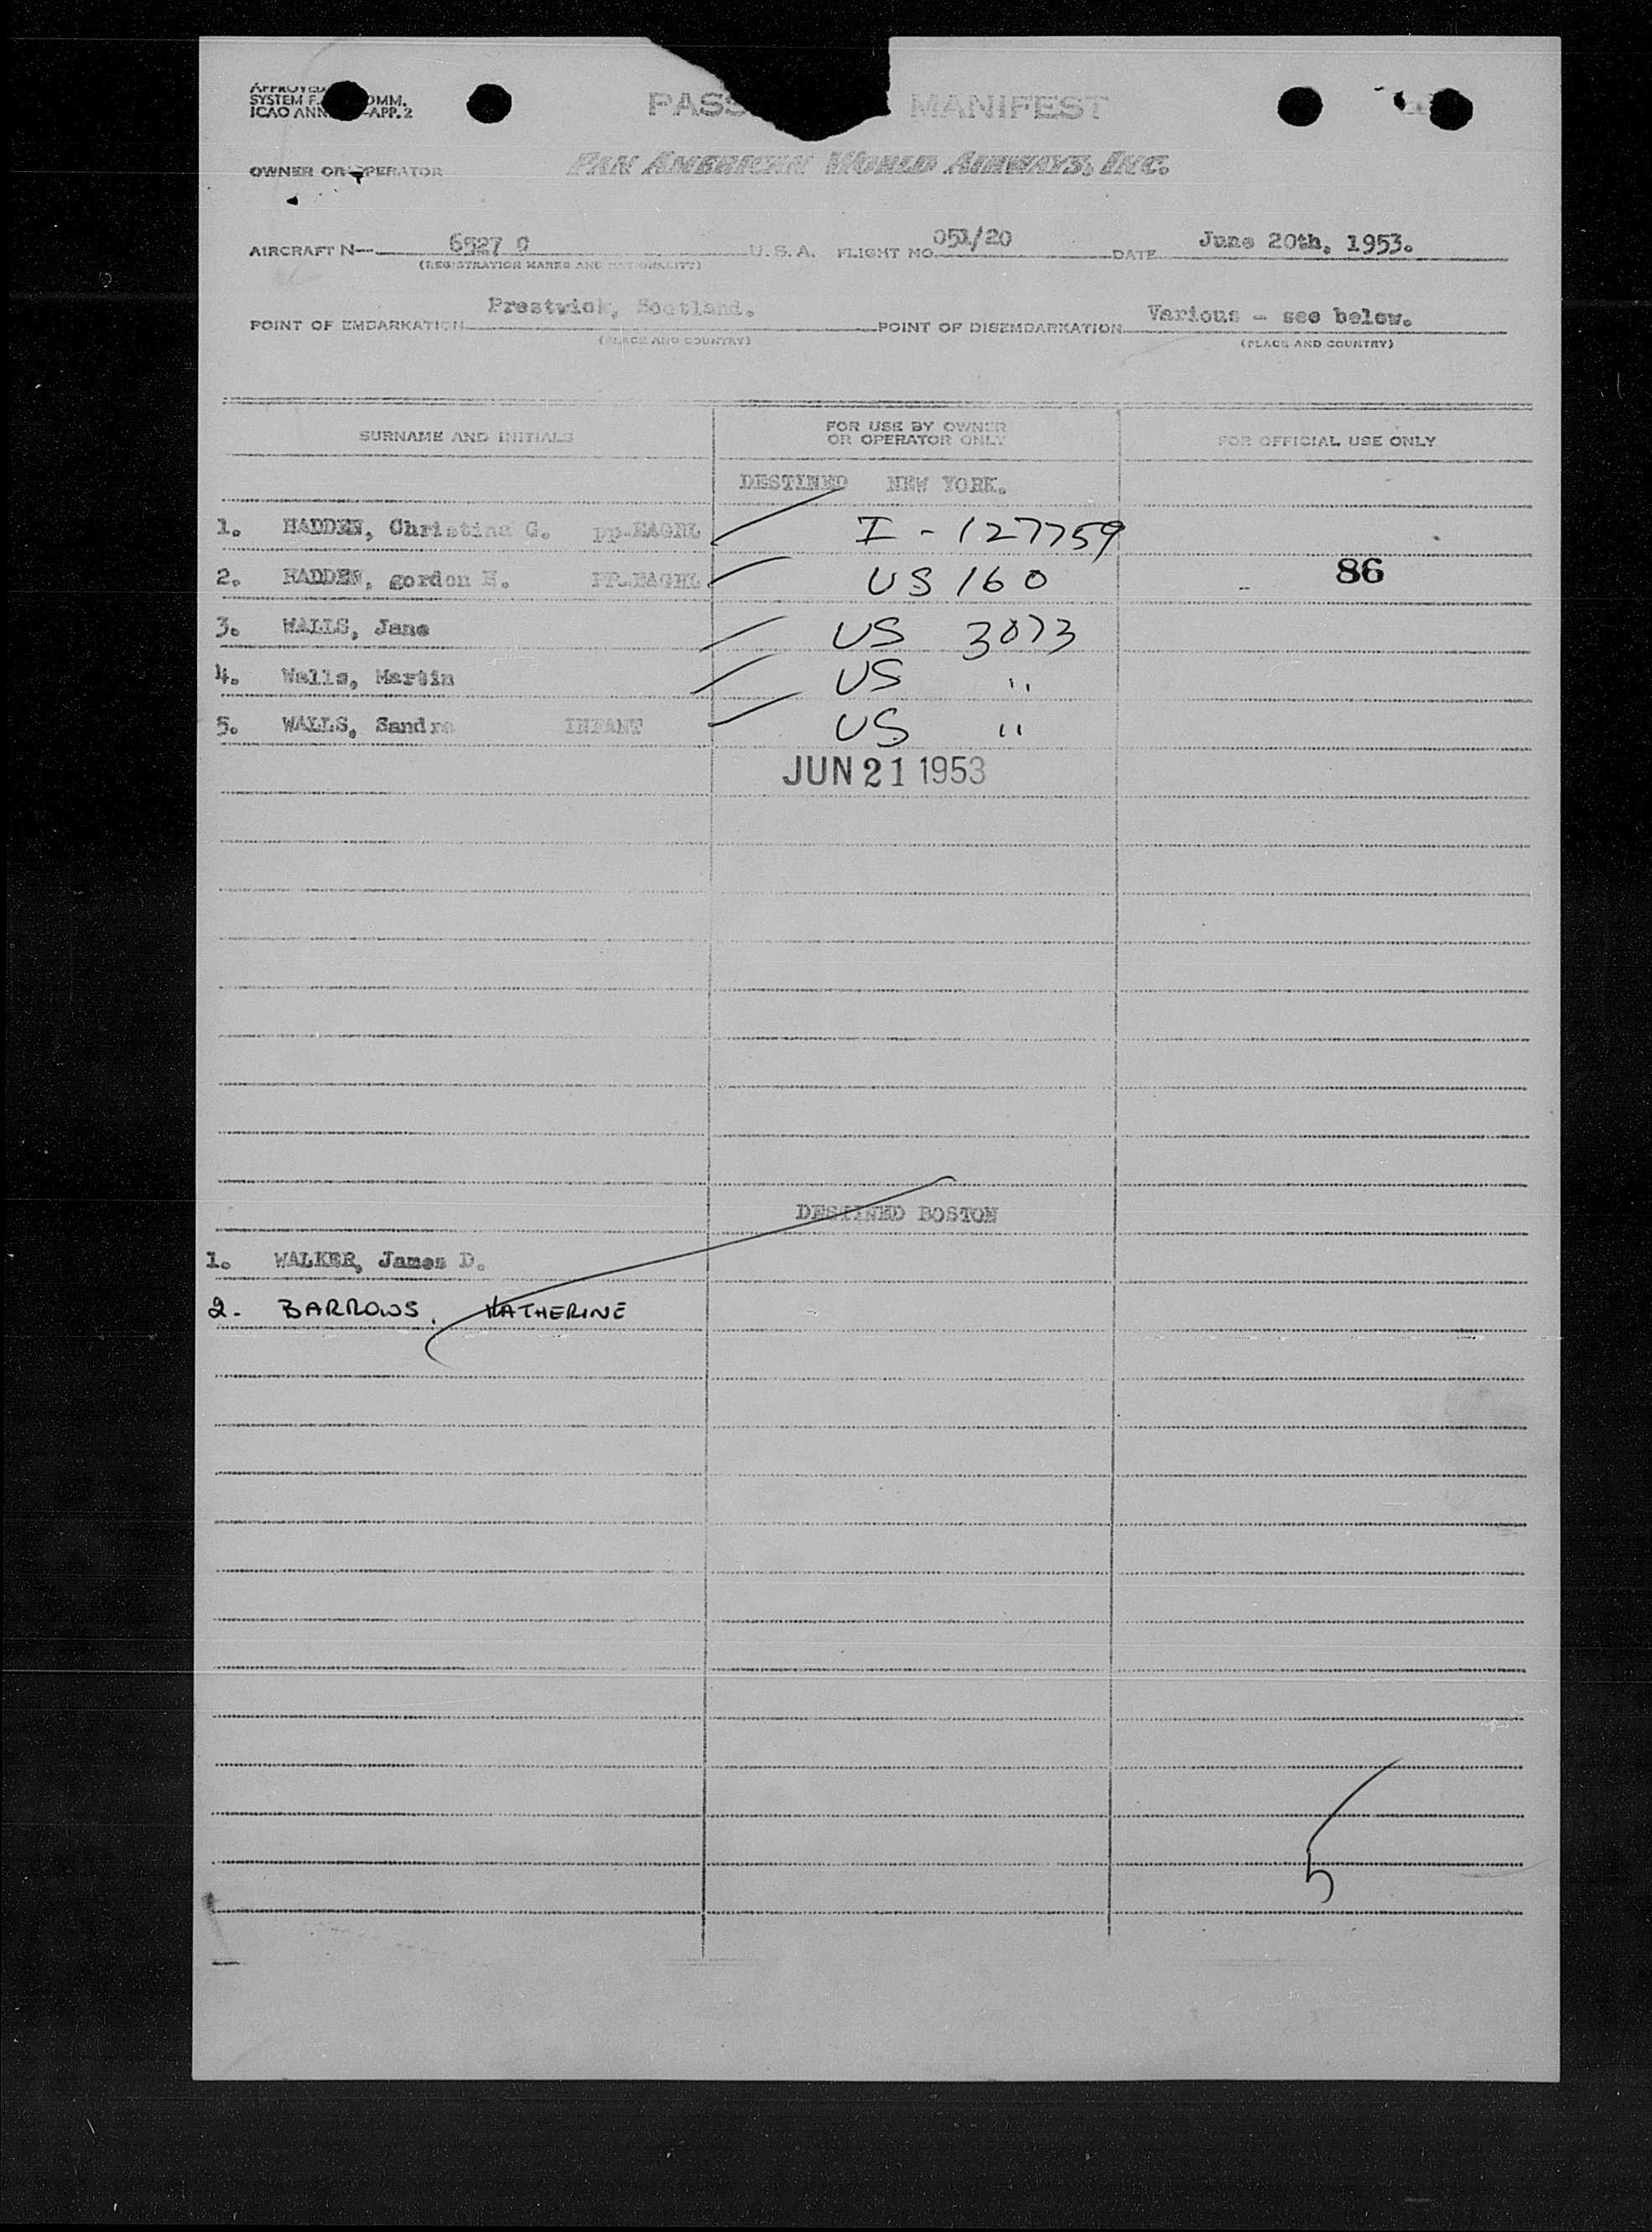 SYSTEM F. OMM.
ICAO ANN -APP. 2
PASS MANIFEST
OWNER OR OPERATOR PAN AMERICAN WORLD AIRWAYS, INC.
AIRCRAFT N 6527 C U. S. A. FLIGHT NO. 051/20 DATE June 20th, 1953.
(REGISTRATION MARKS AND NATIONALITY)
POINT OF EMBARKATION Prestwick, Scotland. POINT OF DISEMBARKATION Various - see below.
(PLACE AND COUNTRY) (PLACE AND COUNTRY)
SURNAME AND INITIALS FOR USE BY OWNER OR OPERATOR ONLY FOR OFFICIAL USE ONLY
DESTINED NEW YORK.
1. HADDEN, Christina G. pp-EAGBL I - 127759
2. HADDEN, gordon H. PP.EAGBL US 160 86
3. WALLS, Jane US 3073
4. Walls, Martin US "
5. WALLS, Sandra INFANT US "
JUN 21 1953
DESTINED BOSTON
1. WALKER, James D.
2. BARROWS, KATHERINE
5